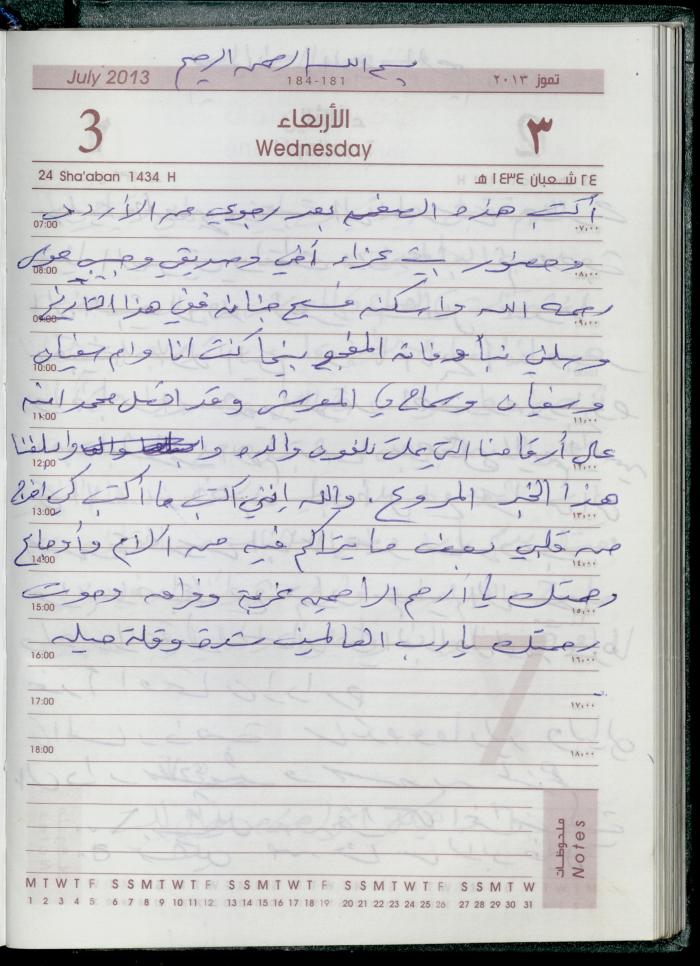 بسم الله الرحمن الرحيم
July 2013 184-181 تموز ٢٠١٣
3 الأربعاء ٣
Wednesday
24 Sha'aban 1434 H ٢٤ شعبان ١٤٣٤ هـ
أكتب هذه الصفحة بعد رجوعي من الأردن
07:00 ٠٧,٠٠
وحضور بيت عزاء أخي وصديقي وحبيبي
08:00 ٠٨,٠٠
رحمه الله واسكنه فسيح جنانه ففي هذا التاريخ
09:00 ٠٩,٠٠
وصلني نبأ وفاته المفجع بينما كنت انا وام سفيان
10:00 ١٠,٠٠
وسفيان وسماح في المعرش وقد اتصل محمد ابنه
11:00 ١١,٠٠
على أرقامنا التي على تلفون والده وابلغنا
12:00 ١٢,٠٠
هذا الخبر المروع. والله إنني اكتب ما أكتب كي افرج
13:00 ١٣,٠٠
عن قلبي بعض ما يتراكم فيه من الالام وأوجاع
14:00 ١٤,٠٠
رحمتك يا أرحم الراحمين غربة وفراق وموت
15:00 ١٥,٠٠
رحمتك يا رب العالمين شدة وقلة حيله
16:00 ١٦,٠٠
17:00 ١٧,٠٠
18:00 ١٨,٠٠
ملحوظات
Notes
M T W T F S S M T W T F S S M T W T F S S M T W T F S S M T W
1 2 3 4 5 6 7 8 9 10 11 12 13 14 15 16 17 18 19 20 21 22 23 24 25 26 27 28 29 30 31